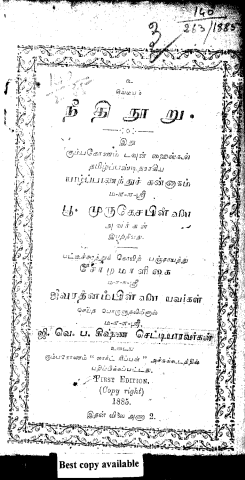 140
263/1885
உ
நீதிநூறு.
இது
கும்பகோணம் டவுன் ஹைஸ்கூல்
தமிழ்ப்பண்டிதராகிய
யாழ்ப்பாணத்துச் சுன்னாகம்
ம-ள-ள-ஸ்ரீ
பூ. முருகேசபிள்ளை
அவர்கள்
இயற்றியது.
பட்டீச்சுரத்துக் கோவிற் பஞ்சாயத்து
சோழமாளிகை
ம-ள-ள-ஸ்ரீ
ஜீவரத்தினம்பிள்ளை யவர்கள்
செய்த பொருளுதவியினால்
ம-ள-ள-ஸ்ரீ
ஜி. வெ. ப. கிஷ்ண செட்டியாரவர்கள்
உடைய
கும்பகோணம் "லார்ட் ரிப்பன்" அச்சுக்கூடத்தில்
பதிப்பிக்கப்பட்டது.
FIRST EDITION.
(Copy right)
1885.
இதன் விலை அணா 2.
Best copy available